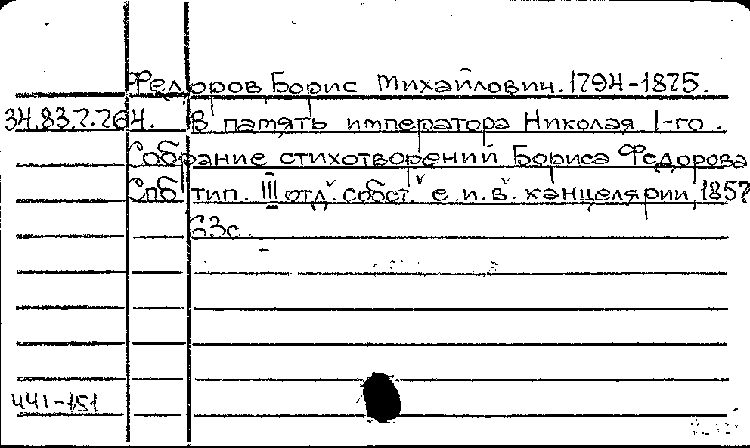 Федоров Борис Михайлович. 1794-1875.
34.83.7.264. В память императора Николая I-го.
Собрание стихотворений Бориса Федорова
Спб тип. III отд. собст. е.и.в. канцелярии, 1857
63с.
441-151